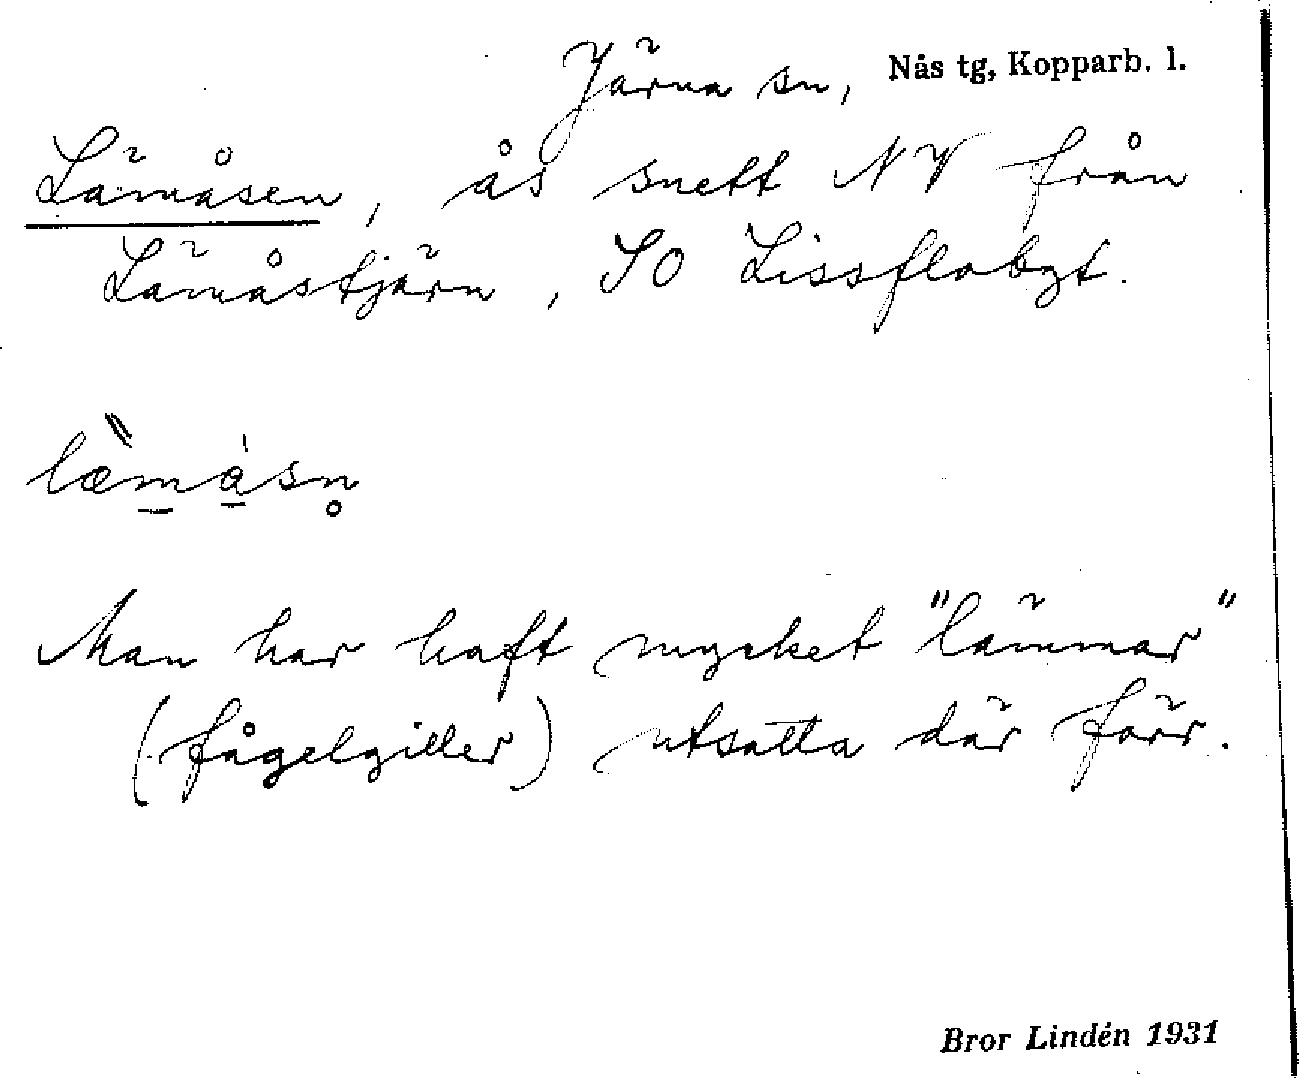 Järna sn, Nås tg, Kopparb. l.
Lämåsen, ås snett NV från
Lämåstjärn, SO Lissflobgt.
læ̀måsn̥
Man har haft mycket "lämmar"
(fågelgiller) utsatta där förr.
Bror Lindén 1931